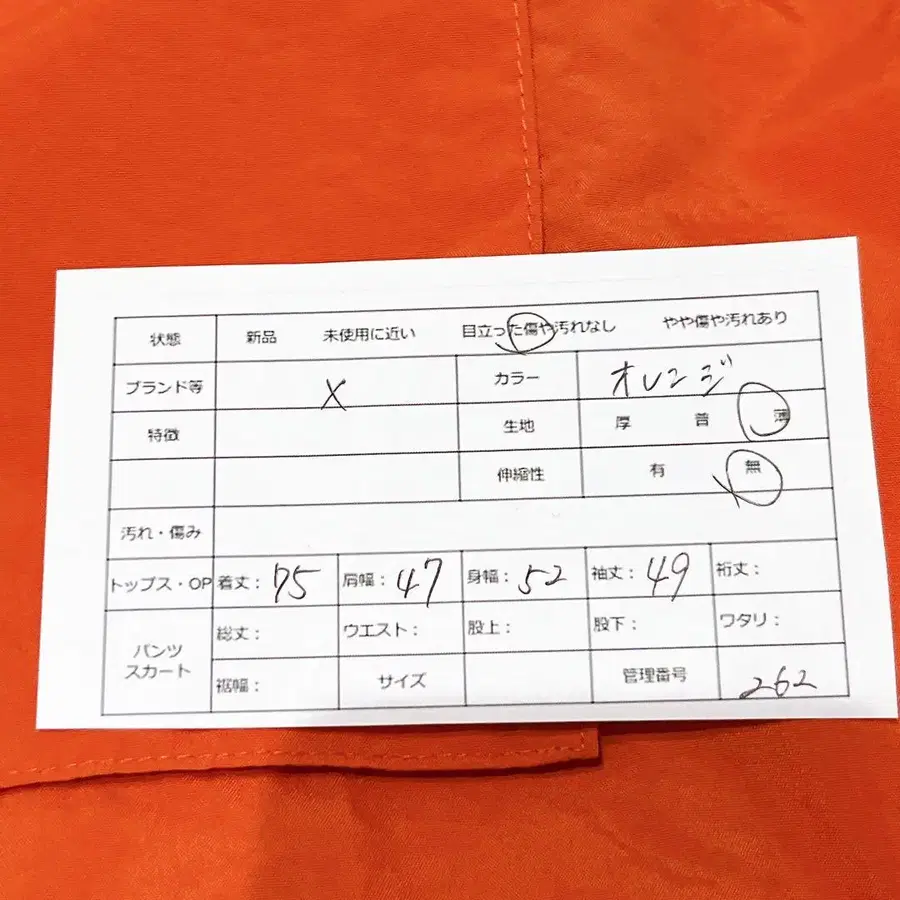 状態 新品 未使用に近い 目立った傷や汚れなし やや傷や汚れあり
ブランド等 X カラー オレンジ
特徴 生地 厚 普 薄
伸縮性 有 無
汚れ・傷み
トップス・OP 着丈: 75 肩幅: 47 身幅: 52 袖丈: 49 裄丈:
パンツ スカート 総丈: ウエスト: 股上: 股下: ワタリ:
裾幅: サイズ 管理番号 262